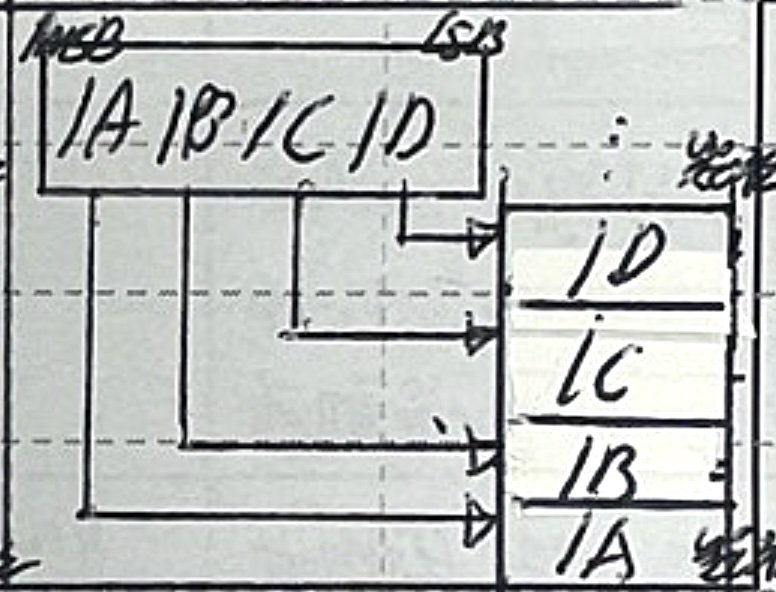 MSB LSB
1A 1B 1C 1D
1D
1C
1B
1A